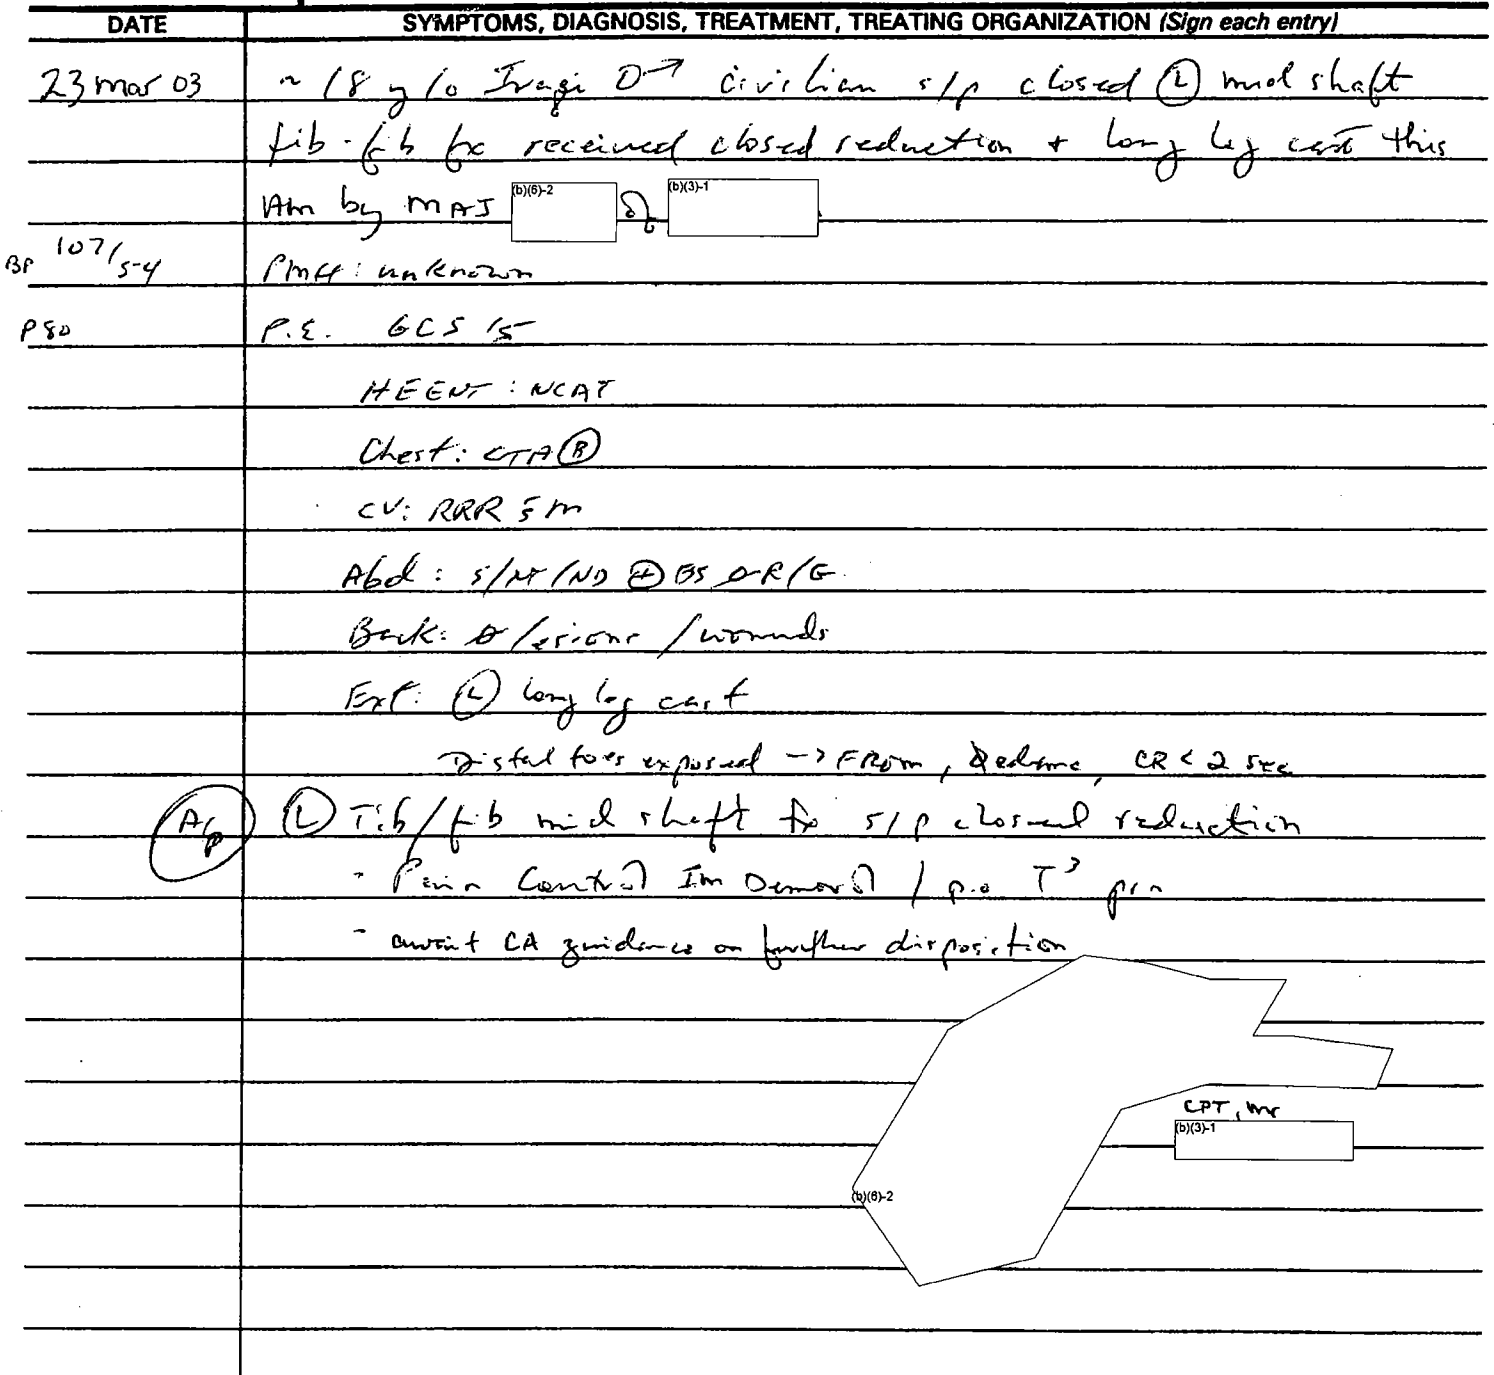 DATE SYMPTOMS, DIAGNOSIS, TREATMENT, TREATING ORGANIZATION (Sign each entry)
23 mar 03 ~ 18 y/o Iraqi ♂ civilian s/p closed Ⓛ mid shaft
tib-fib fx received closed reduction + long leg cast this
Am by MAJ (b)(6)-2 (b)(3)-1
BP 107/54 PMH: unknown
P 80 P.E. GCS 15
HEENT: NCAT
Chest: CTA Ⓑ
CV: RRR s̄ m
Abd: S/NT/ND ⊕ BS ∅ R/G
Back: ∅ lesions / wounds
Ext: Ⓛ long leg cast
Distal toes exposed -> FROM, CR < 2 sec
A/P Ⓛ Tib/fib mid shaft fx s/p closed reduction
- Pain Control Im Demerol / p.o T3 prn
- await CA guidance on further disposition
CPT, mc
(b)(3)-1
(b)(6)-2